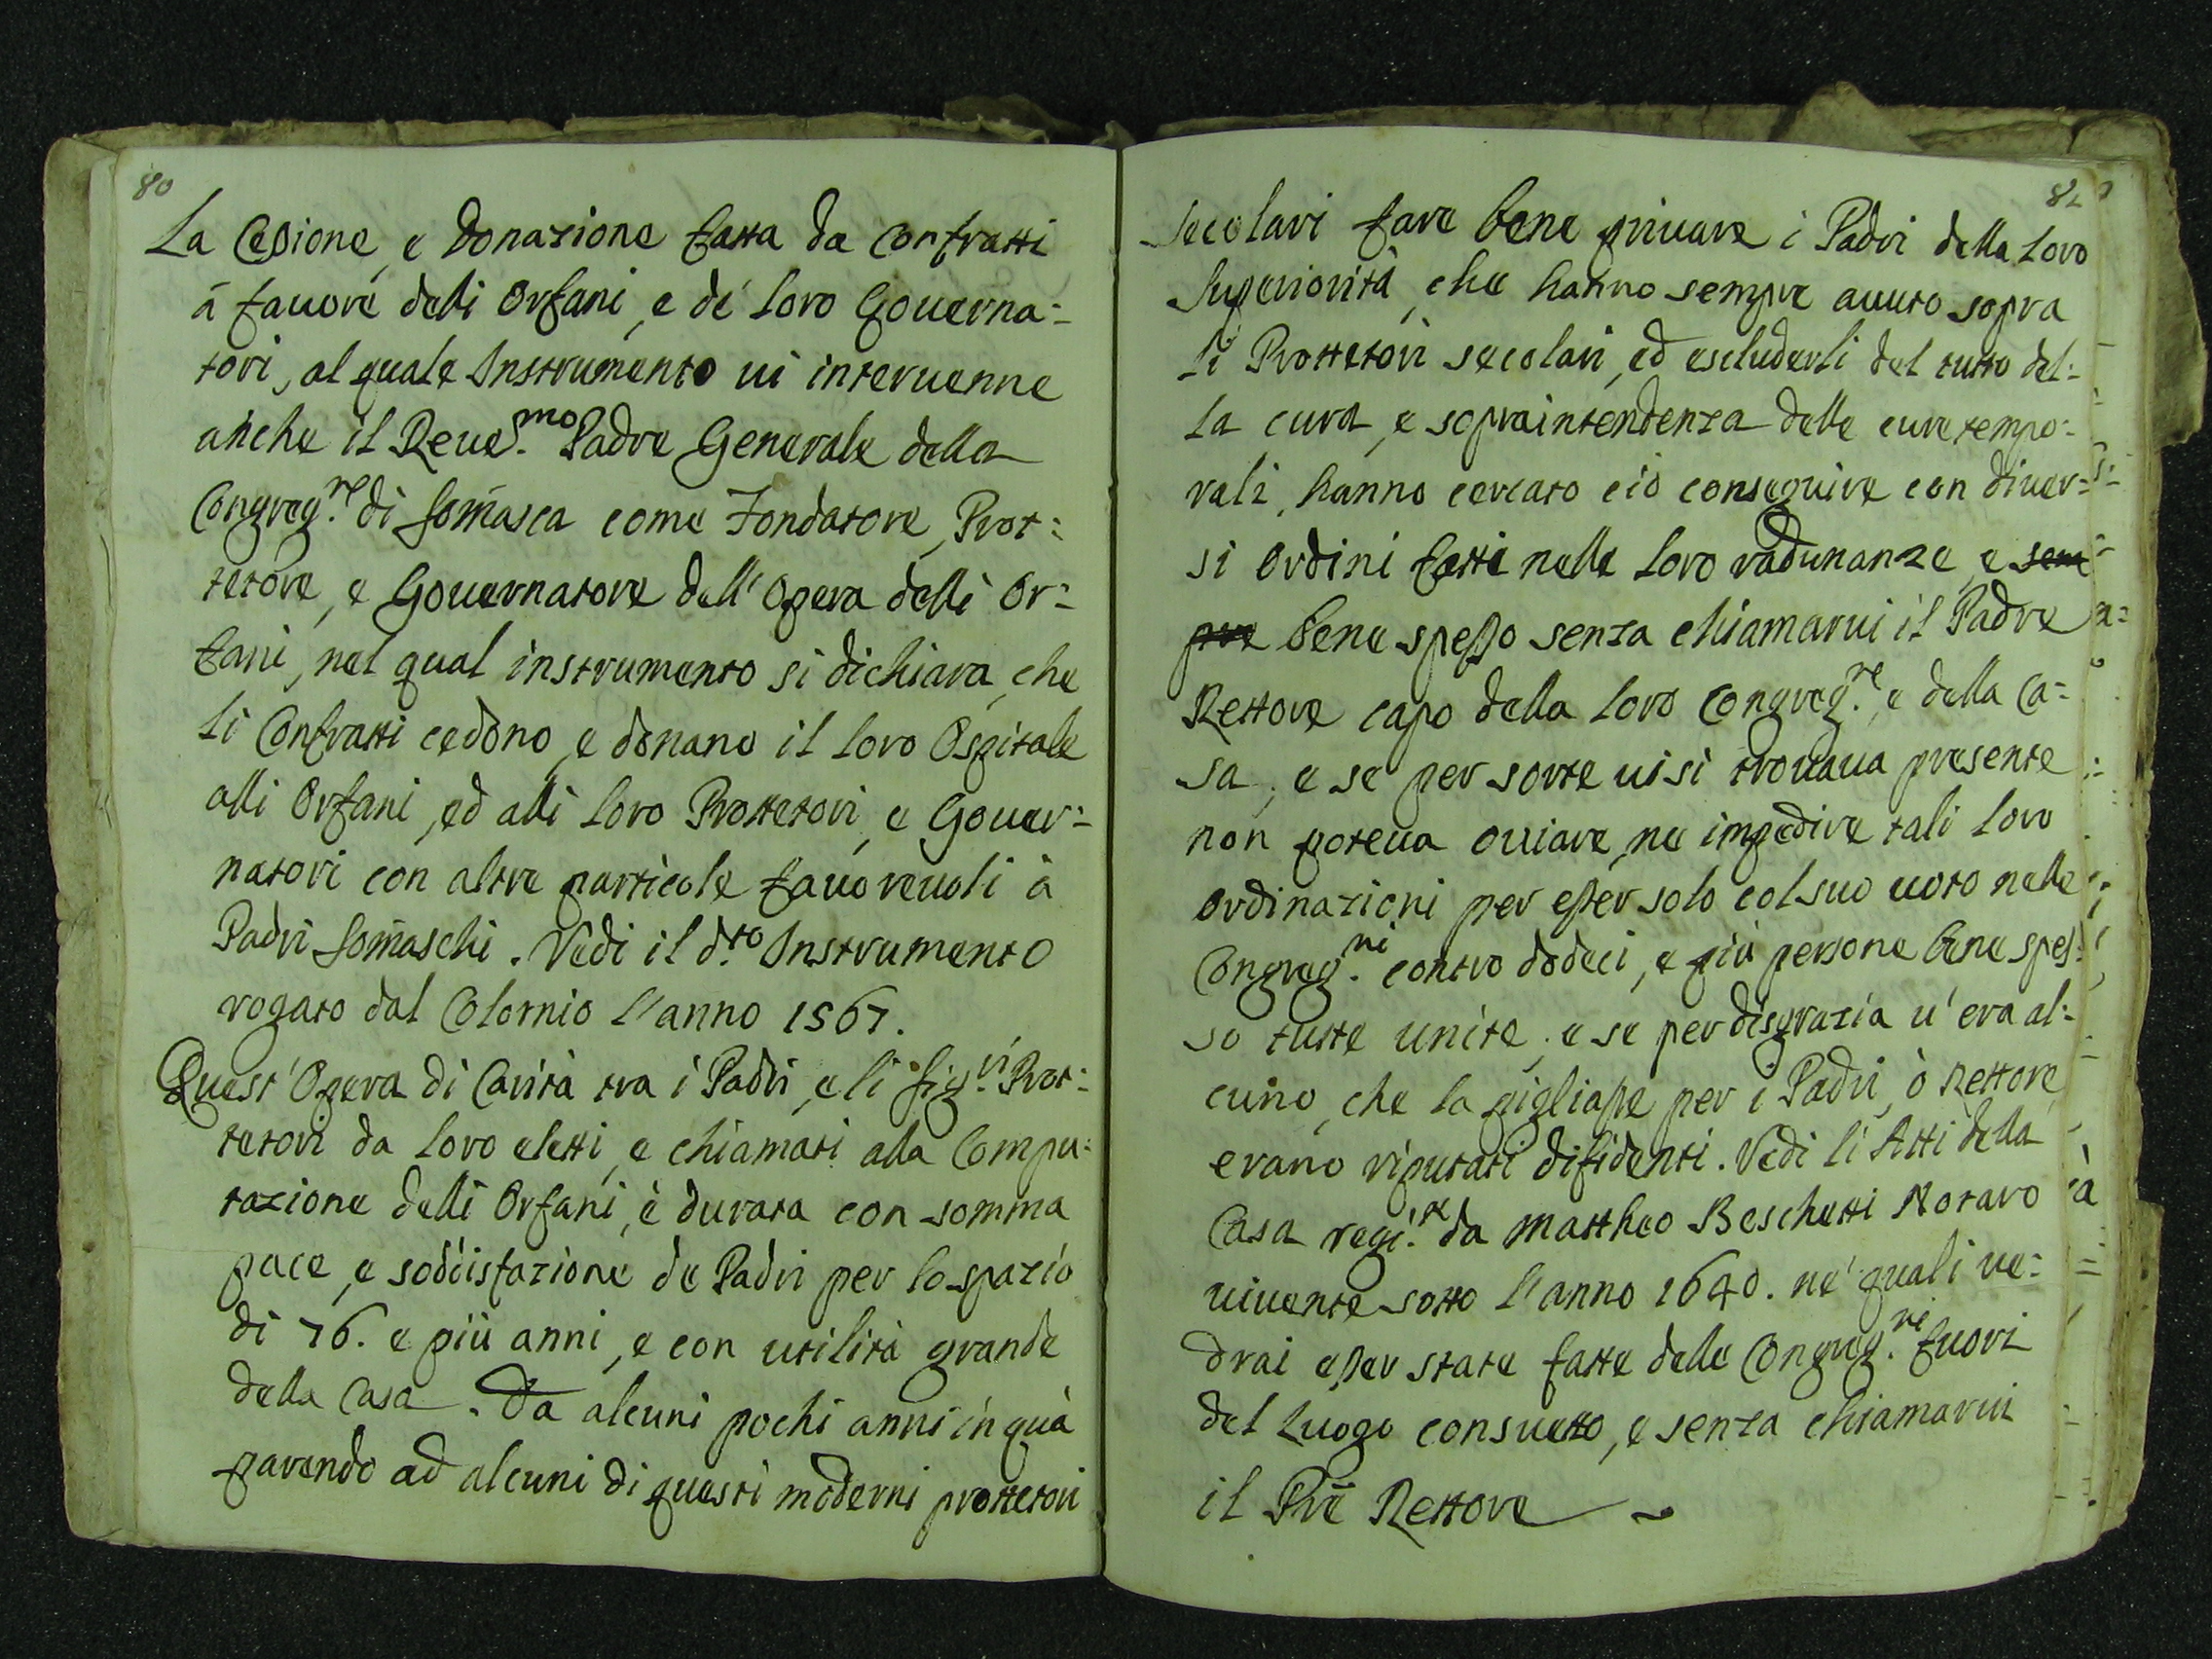 80
La Cesione, e Donazione fatta da Confratti
à fauore delli Orfani, e dè loro Gouerna=
tori, al quale Instrumento ui interuenne
anche il Reue.mo Padre Generale della
Congreg.ne di Som̃asca come Fondatore, Prot=
tetore, e Gouernatore dell'Opera delli Or=
fani, nel qual instrumento si dichiara, che
li Confratti cedono, e donano il loro Ospitale
alli Orfani, ed alli loro Prottetori, e Gouer=
natori con altre particole fauoreuoli à
Padri Som̃aschi. Vedi il d.to Instrumento
rogato dal Colornio l'anno 1567.
Quest'Opera di Carità tra i Padri, e li Sig.ri Prot=
tetori da loro eletti, e chiamati alla Compu=
tazione delli Orfani, è durata con somma
pace, e soddisfazione de Padri per lo spazio
di 76. e più anni, e con utilità grande
della Casa. Da alcuni pochi anni in quà
parendo ad alcuni di questi moderni prottetori
82
secolari fare bene priuare i Padri della loro
Superiorità, che hanno sempre auuto sopra
li Prottetori secolari, ed escluderli del tutto del=
la cura, e sopraintendenza delle cure tempo=
rali, hanno cercato ciò conseguire con diuer=
si Ordini fatti nelle loro radunanze, e sem
pre bene spesso senza chiamarui il Padre
Rettore capo della loro Congreg.ne, e della Ca=
sa, e se per sorte ui si trouaua presente
non poteua ouiare, ne impedire tali loro
Ordinazioni per esser solo col suo uoto nelle
Congreg.ni contro dodeci, e più persone bene spes=
so tutte unite, e se per disgrazia u'era al=
cuno, che la pigliasse per i Padri, ò Rettore
erano riputati difidenti. Vedi li Atti della
Casa regi.te da Mattheo Beschetti Notaro
uiuente sotto l'anno 1640. nè quali ue=
drai esser state fatte delle Congreg.ni fuori
del luogo consueto, e senza chiamarui
il Pr̃e Rettore